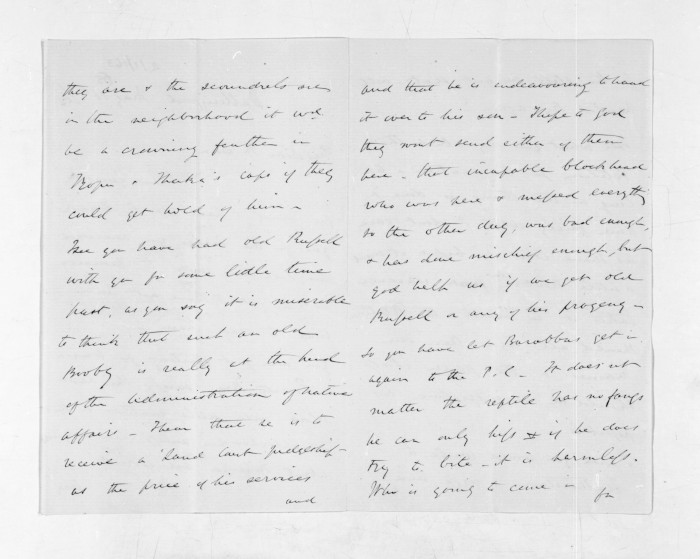 they are & the scoundrels are
in the neighborhood it wd
be a crowning feather in
& caps if they
could get hold of him –
I see you have had old Russell
with you for some little time
past, as you say it is miserable
to think that such an old
Booby is really at the head
of the administration of native
affairs – I hear that he is to
receive a Land Court Judgeship –
as the price of his services
and
and that he is endeavouring to hand
it over to his son – I hope to god
they wont send either of them
here – that incapable blockhead
who was here & messed everything
so the other day, was bad enough,
& has done mischief enough, but
god help us if we get old
Russell or any of his progeny –
So you have let Barabbas get in
again to the P.C. – It does not
matter the reptile has no fangs
he can only hiss & if he does
try to bite – it is harmless.
Who is going to come in for